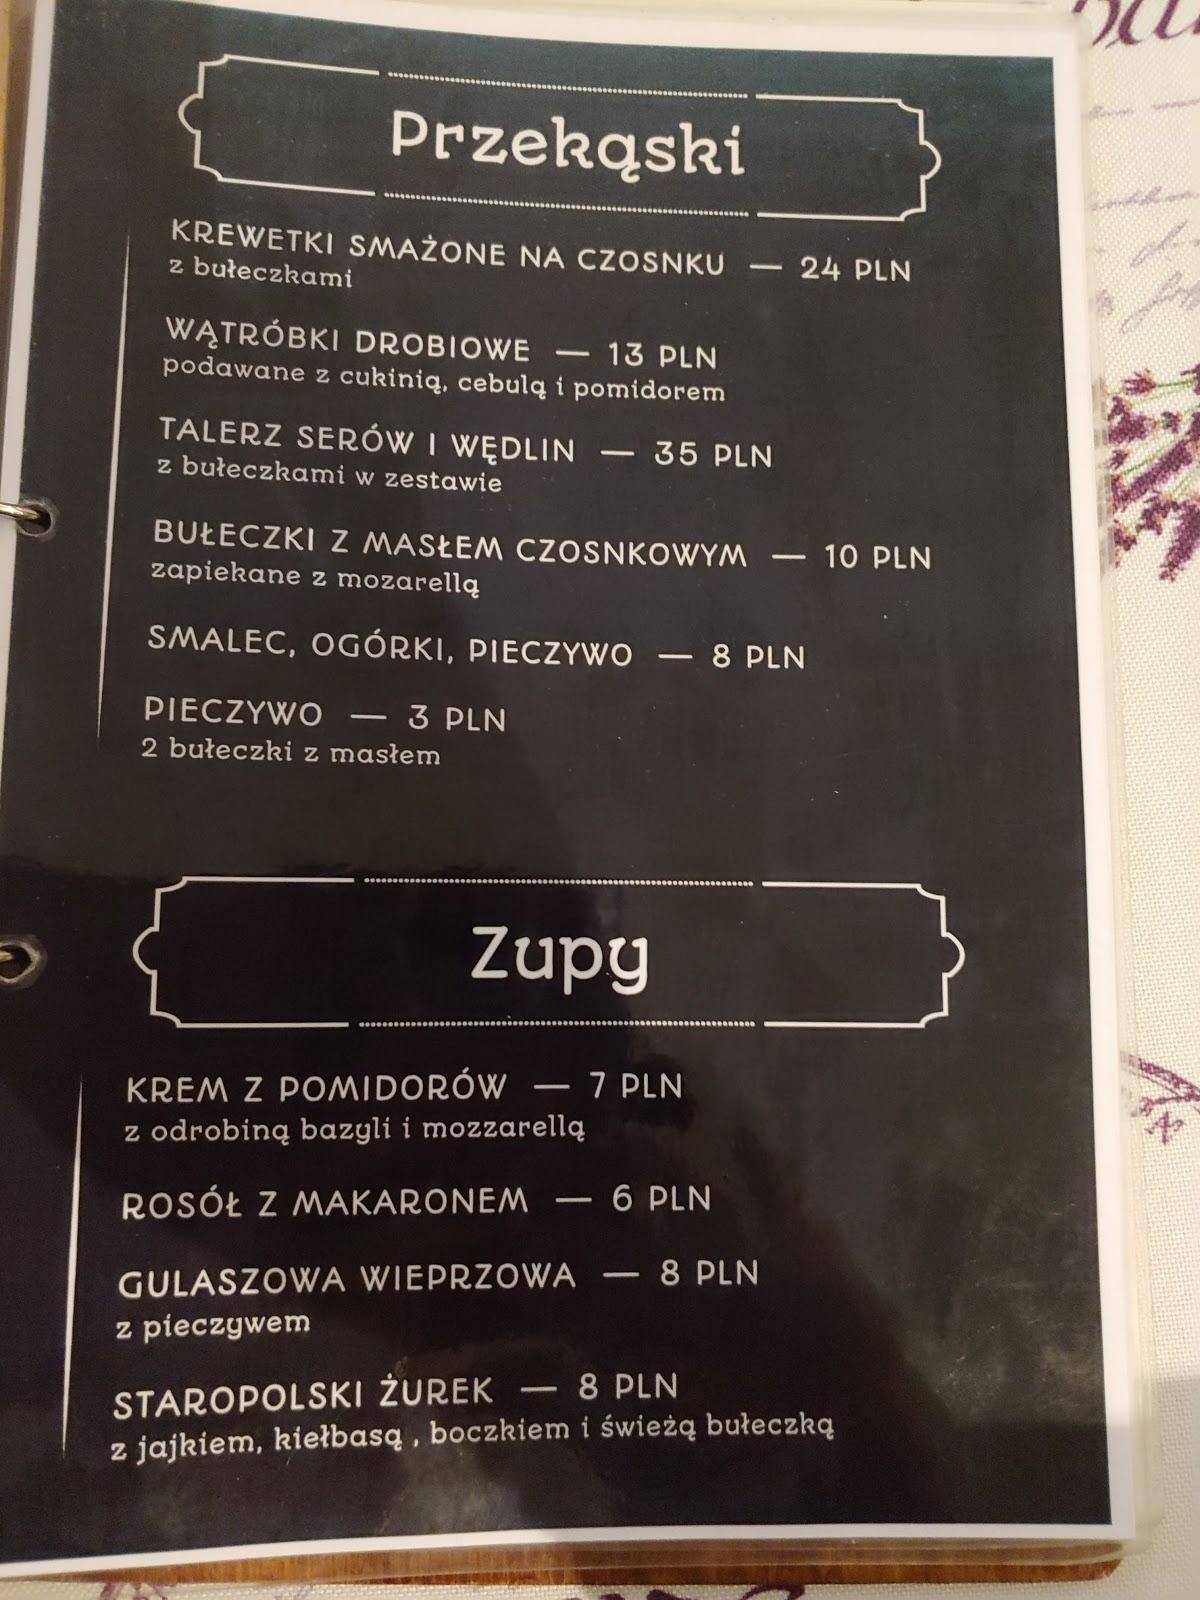 Przekąski
KREWETKI SMAŻONE NA CZOSNKU — 24 PLN
z bułeczkami
WĄTRÓBKI DROBIOWE — 13 PLN
podawane z cukinią, cebulą i pomidorem
TALERZ SERÓW I WĘDLIN — 35 PLN
z bułeczkami w zestawie
BUŁECZKI Z MASŁEM CZOSNKOWYM — 10 PLN
zapiekane z mozarellą
SMALEC, OGÓRKI, PIECZYWO — 8 PLN
PIECZYWO — 3 PLN
2 bułeczki z masłem
Zupy
KREM Z POMIDORÓW — 7 PLN
z odrobiną bazyli i mozzarellą
ROSÓŁ Z MAKARONEM — 6 PLN
GULASZOWA WIEPRZOWA — 8 PLN
z pieczywem
STAROPOLSKI ŻUREK — 8 PLN
z jajkiem, kiełbasą , boczkiem i świeżą bułeczką